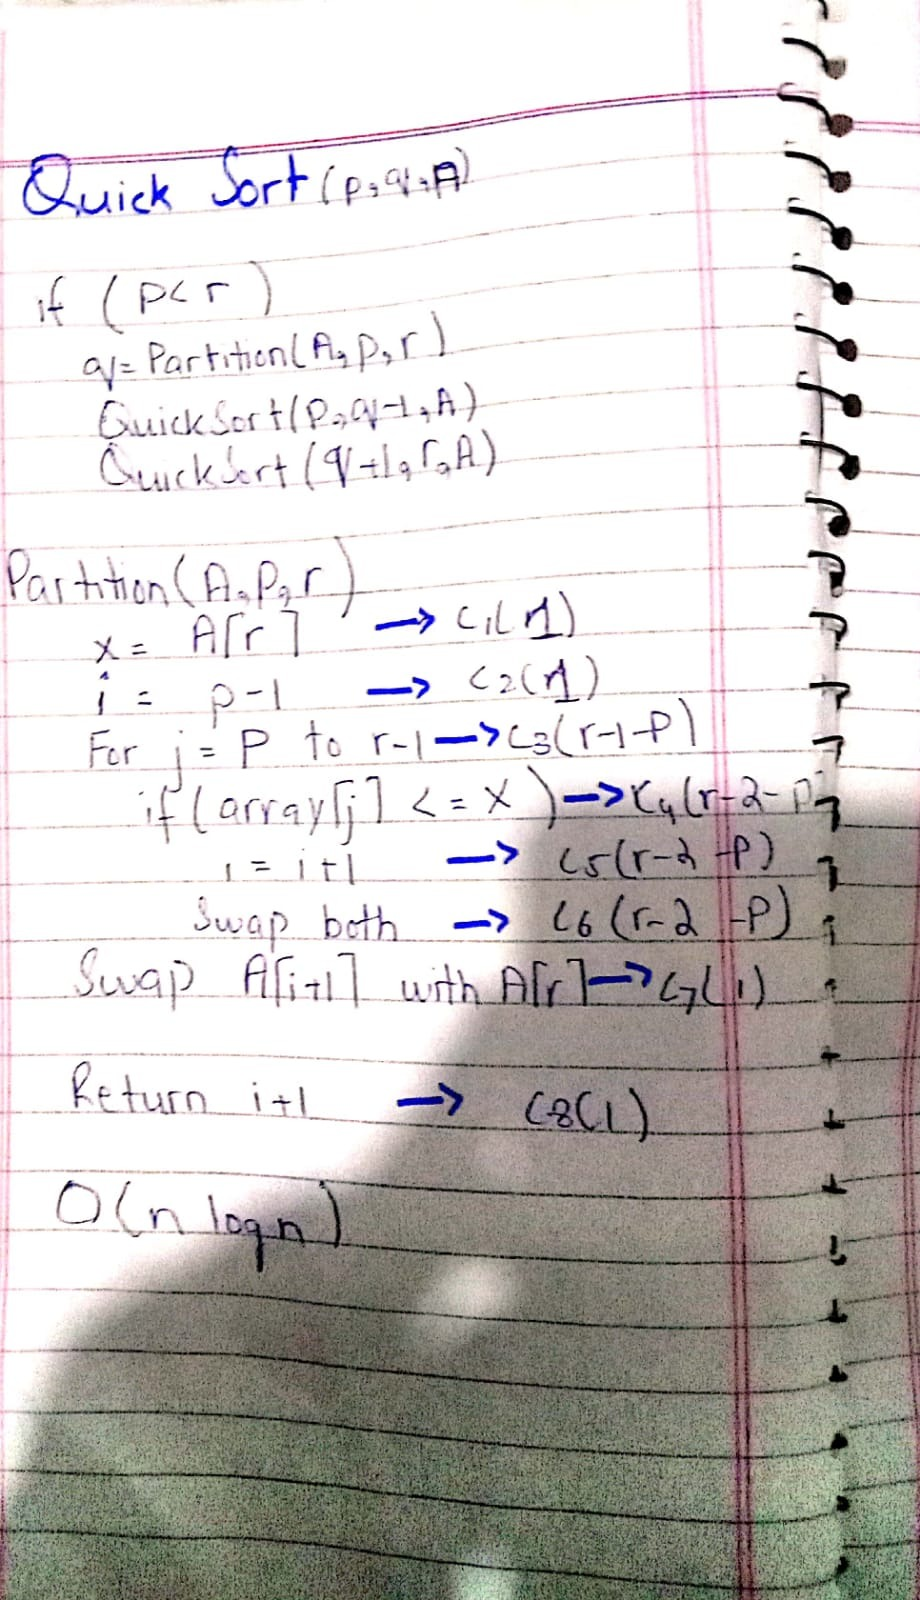 Quick Sort (p,q,A)
if (p<r)
q= Partition(A,p,r)
QuickSort(p,q-1,A)
QuickSort(q+1,r,A)
Partition(A,p,r)
x = A[r] → c1(1)
i = p-1 → c2(1)
For j = P to r-1 → c3(r-1-P)
if(array[j] <= x) → c4(r-2-p
i = i+1 → c5(r-2-p)
Swap both → c6(r-2-P)
Swap A[i+1] with A[r] → c7(1)
Return i+1 → c8(1)
O(n logn)